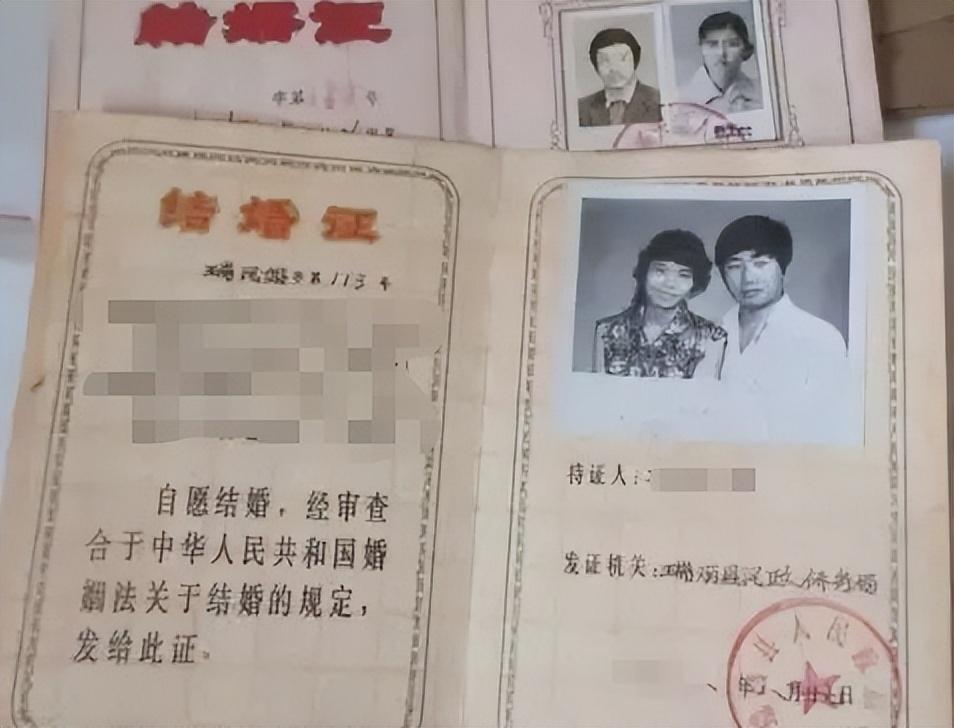 结婚证
字第 号
结婚证
瑞民婚字第113号
自愿结婚，经审查
合于中华人民共和国婚
姻法关于结婚的规定，
发给此证。
持证人：
发证机关：瑞丽县民政
年 八月 日
人民